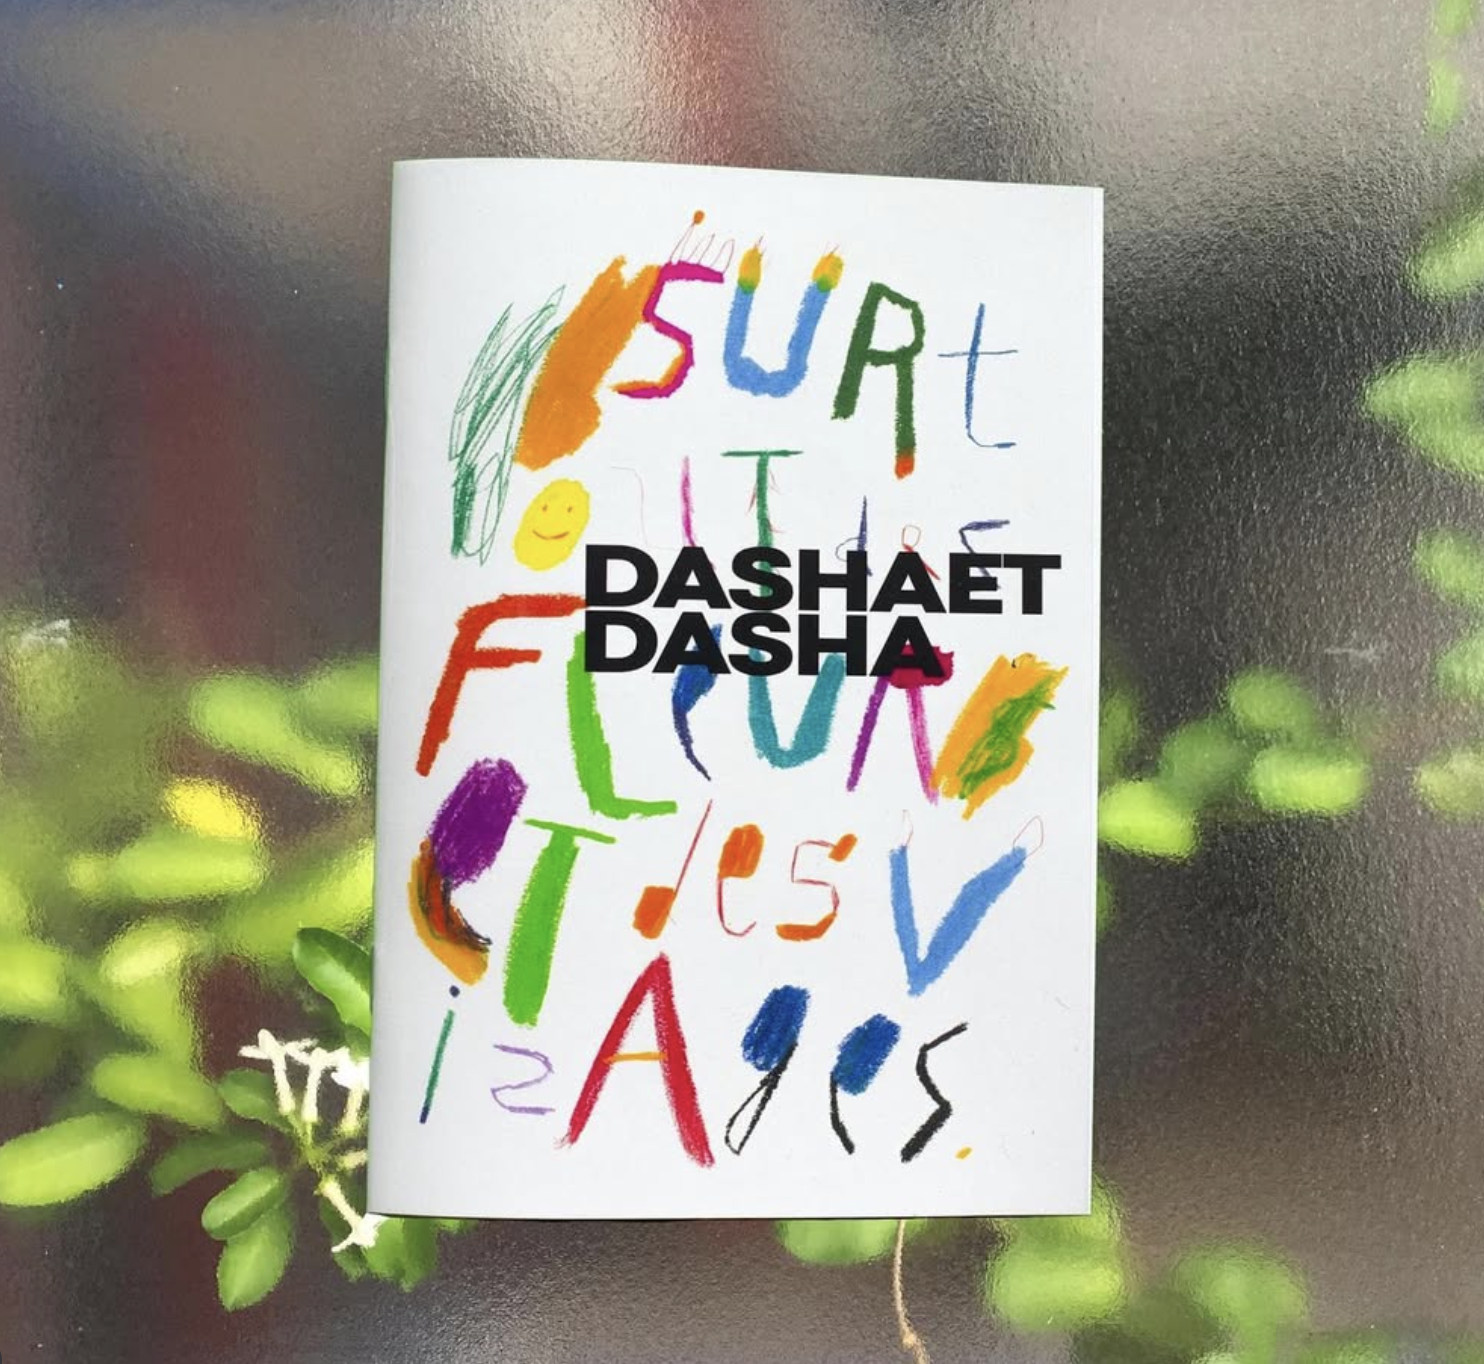 SURt
des
DASHAET
DASHA
FLeUR
eT des V
isAges.